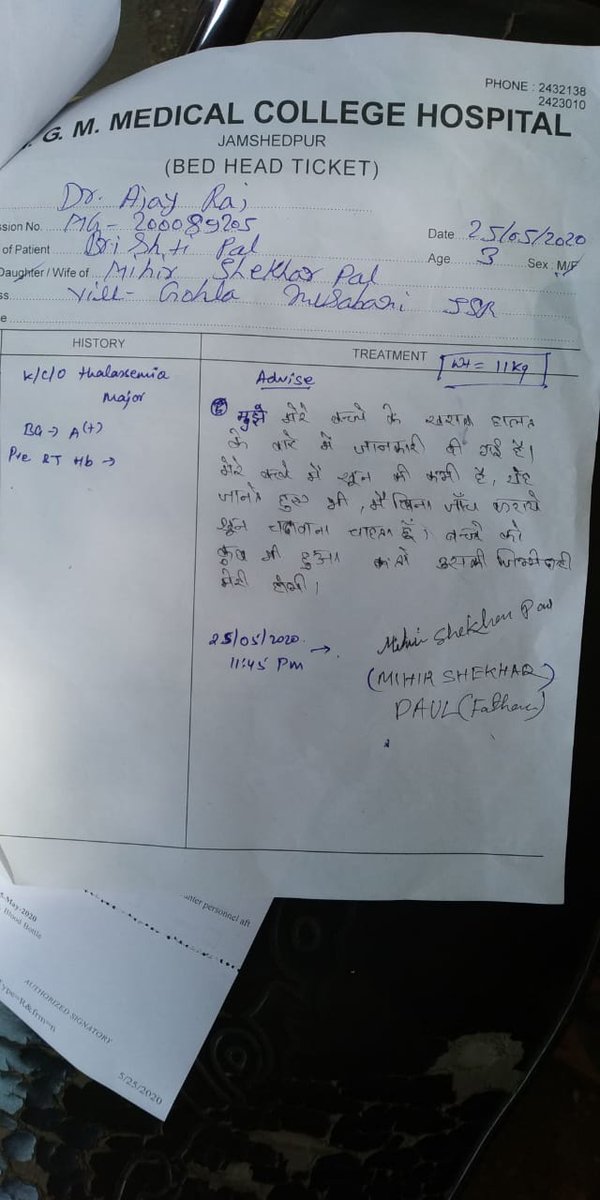 PHONE : 2432138
2423010
G. M. MEDICAL COLLEGE HOSPITAL
JAMSHEDPUR
(BED HEAD TICKET)
Dr. Ajay Raj
ssion No. MG - 200089205
Date 25/05/2020
of Patient Brishti Pal
Age 3 Sex M/F
Daughter / Wife of Mihir Shekhar Pal
ss Vill- Gohla Musabani JSR
e
HISTORY
TREATMENT
Wt = 11 kg
K/C/O thalassemia
Major
BG → A(+)
Pre BT Hb →
Advise
मुझे मेरे बच्चे के खराब हालत
के बारे में जानकारी दी गई है।
मेरे बच्चे में खून की कमी है, यह
जानते हुए भी, मैं बिना जाँच कराये
खून चढ़वाना चाहता हूँ। बच्चे को
कुछ भी हुआ तो उसकी जिम्मेदारी
मेरी होगी।
25/05/2020
11:45 Pm →
Mihir Shekhar Paul
(MIHIR SHEKHAR)
PAUL (Father)
personnel aft
5-May-2020
Blood Bottle
AUTHORIZED SIGNATORY
Type=R&frm=n
5/25/2020